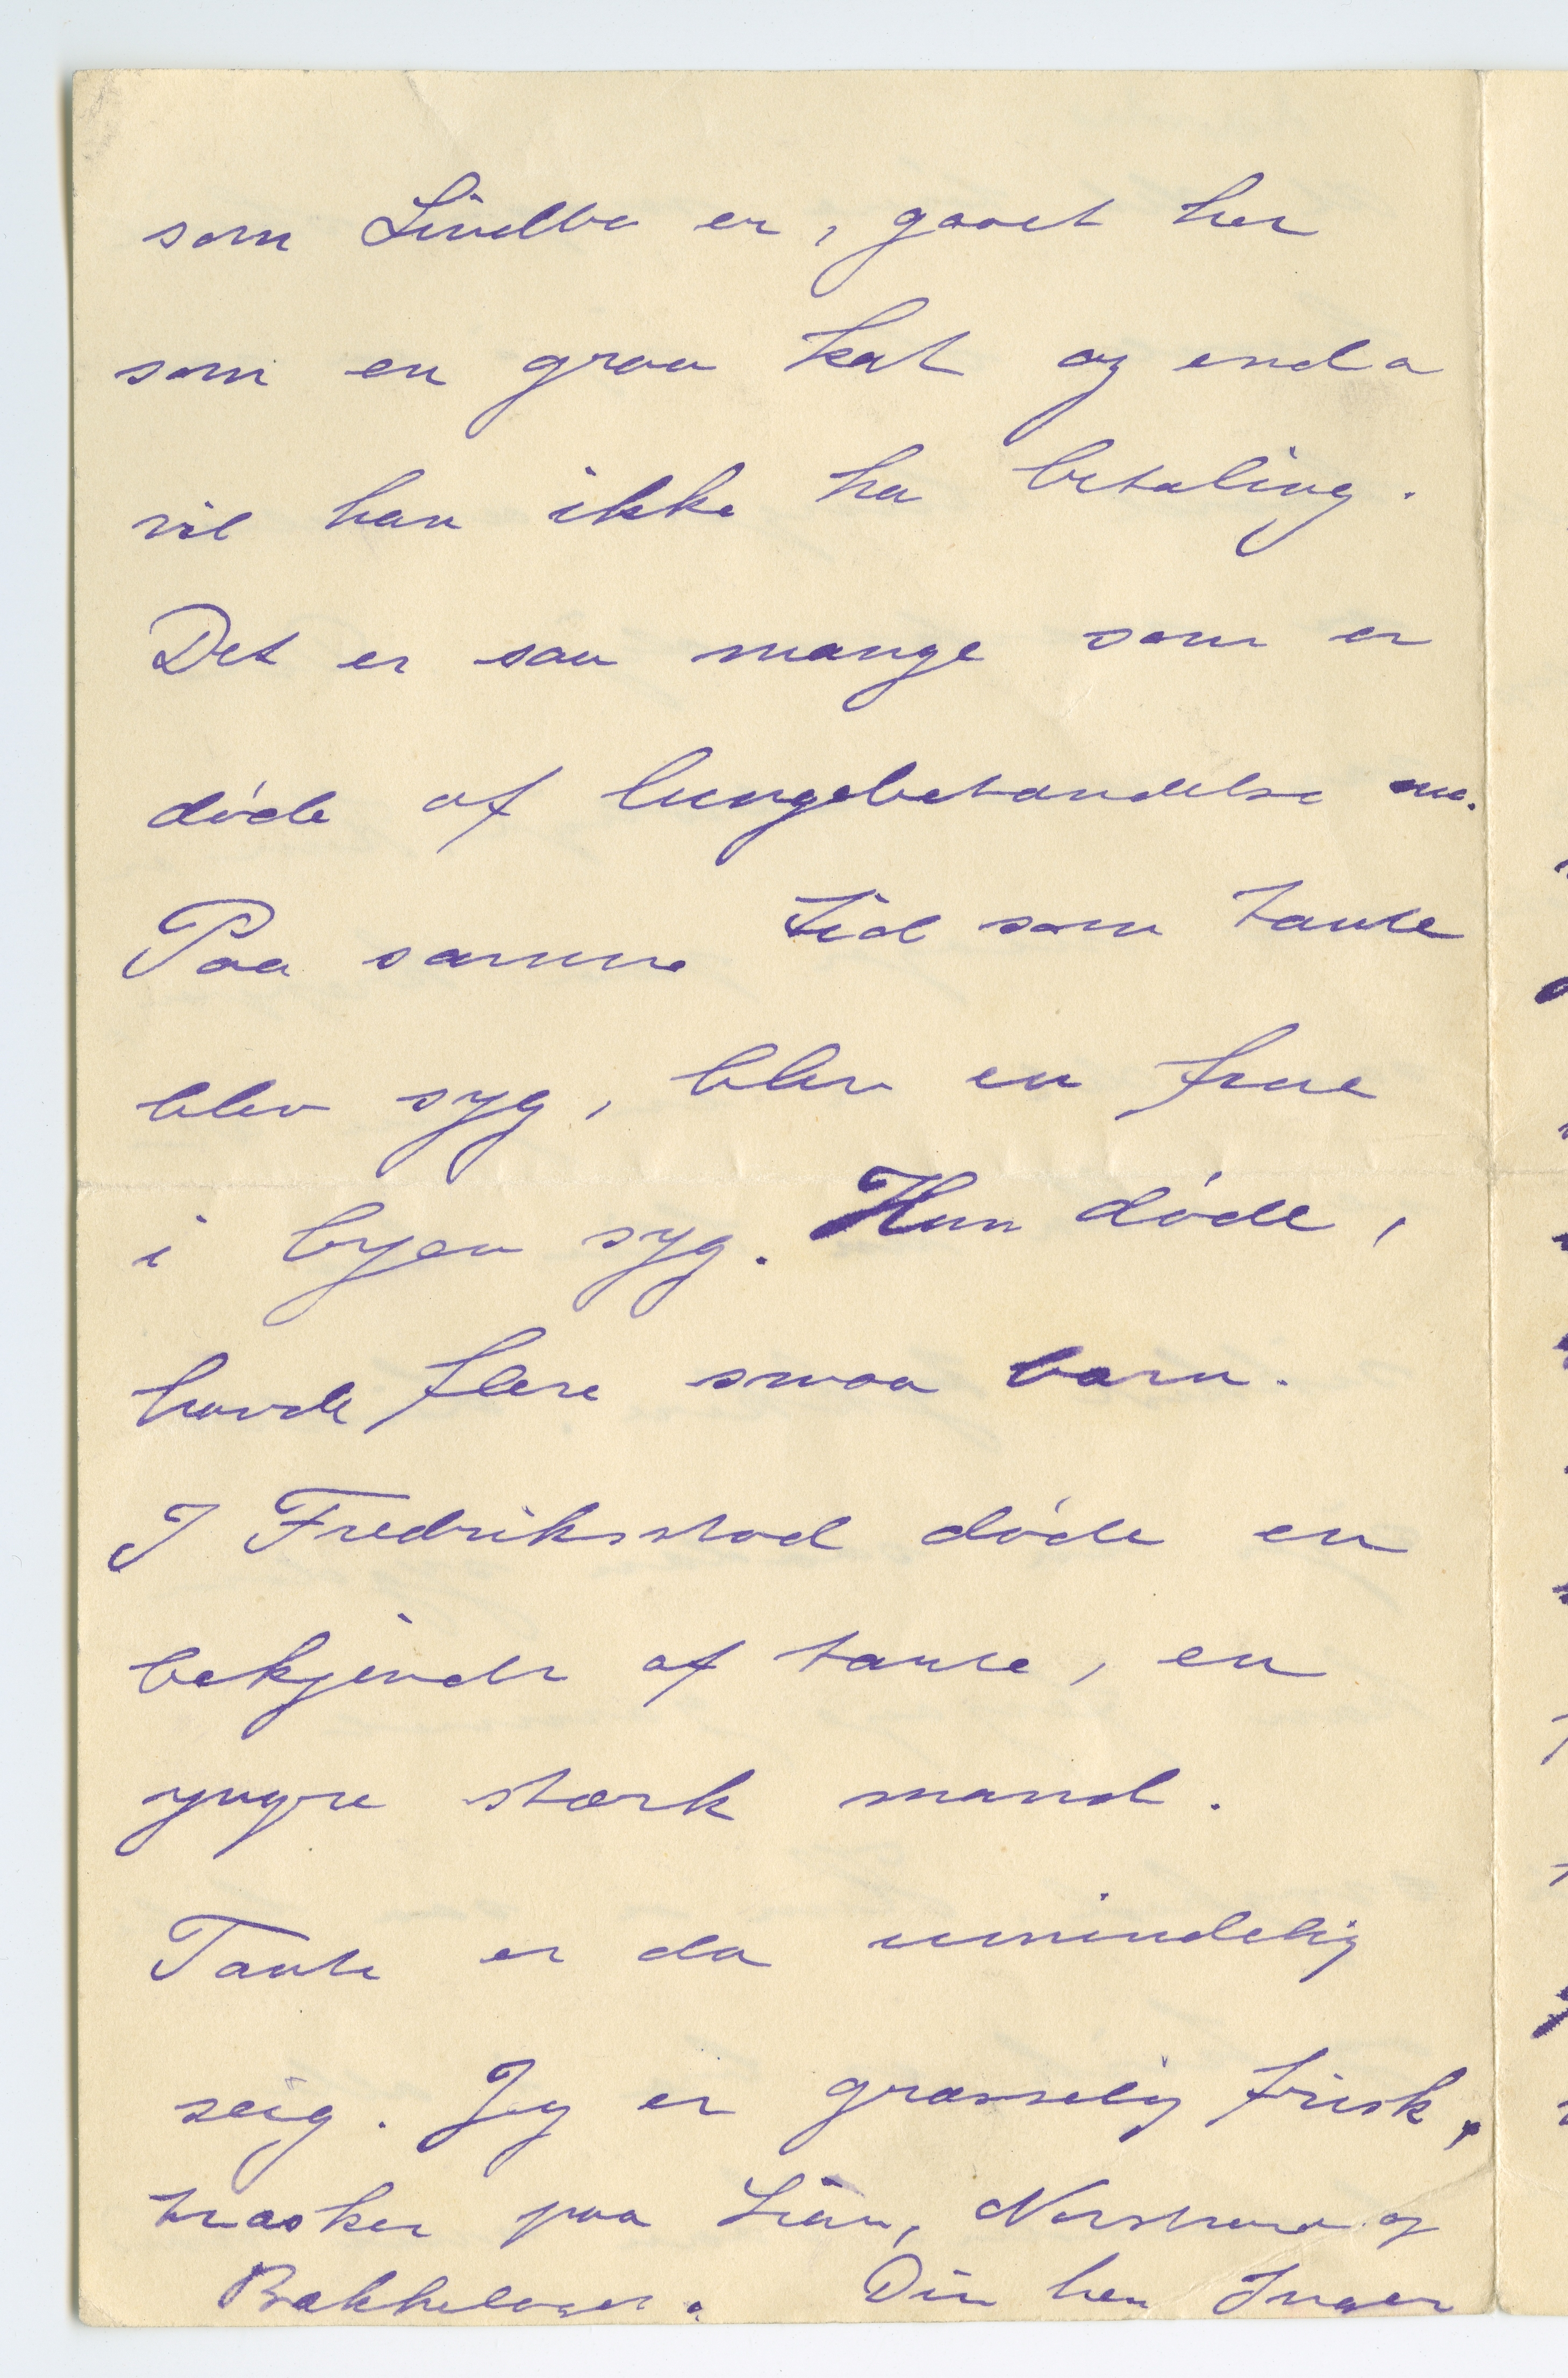 som Lindbo er, gaaet her
som en graa kat og enda
vil han ikke ha betaling.
Det er saa mange som er
døde af lungebetændelse nu.
Paa samme tid som tante
blev syg, blev en frue
i byen syg. Hun døde,
havde flere smaa børn.
I Fredriksstad døde en
bekjendt af tante, en
yngre stærk mand.
Tante er da umindelig
seig. Jeg er græsselig frisk,
trasker paa Lian, Norstrand og
Bækkelaget. Din hen Inger